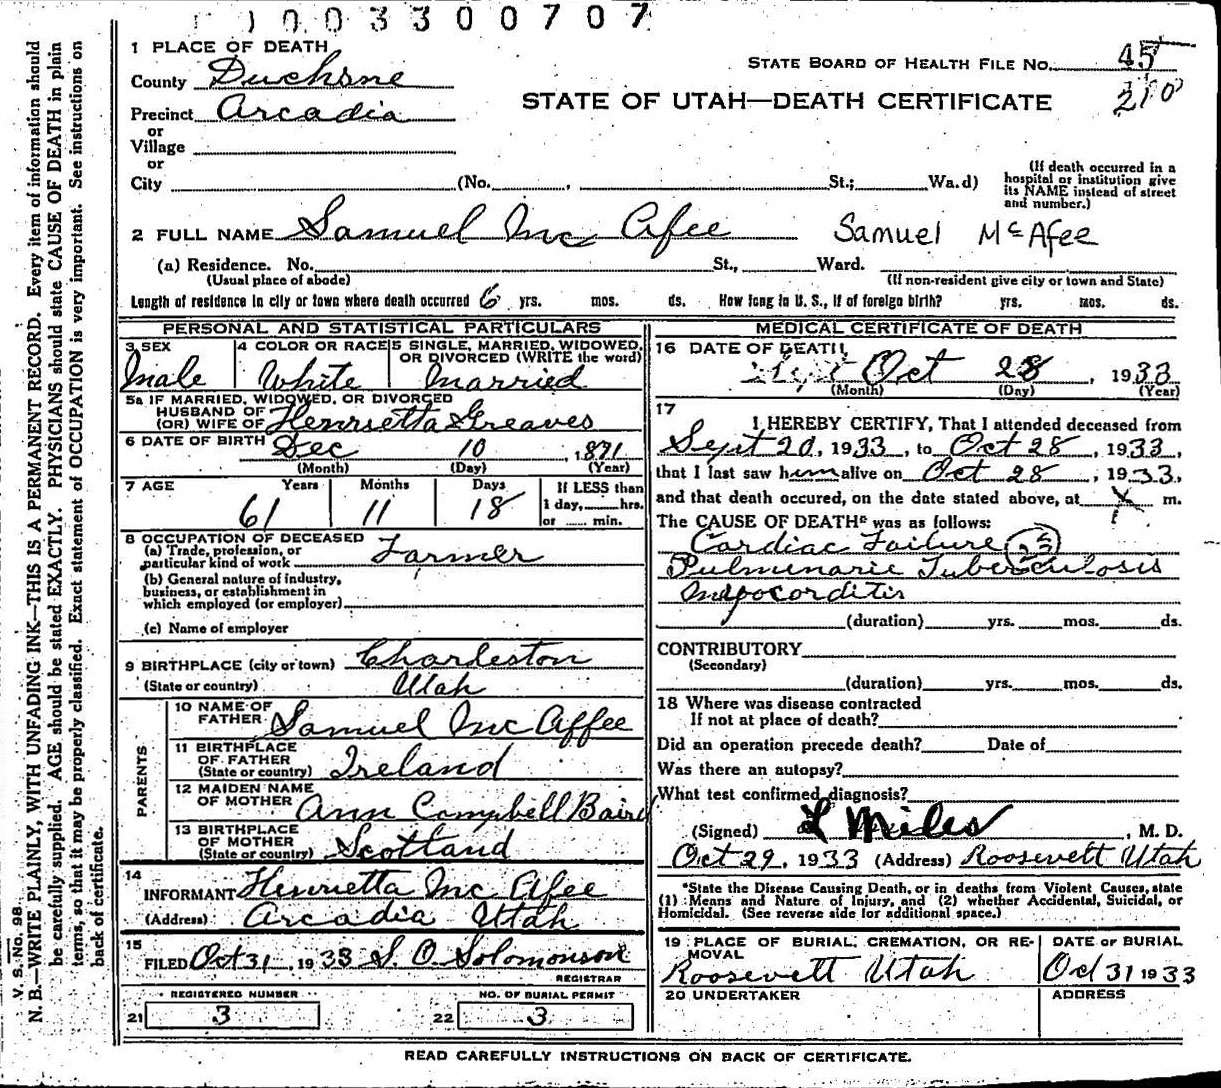 1003300707
1 PLACE OF DEATH
County Duchsne
STATE BOARD OF HEALTH FILE No. 45
210
STATE OF UTAH—DEATH CERTIFICATE
Precinct Arcadia
or
Village
or
City (No. , St.; Wa.d)
(If death occurred in a
hospital or institution give
its NAME instead of street
and number.)
2 FULL NAME Samuel Mc Afee Samuel McAfee
(a) Residence. No. St., Ward.
(Usual place of abode) (If non-resident give city or town and State)
Length of residence in city or town where death occurred 6 yrs. mos. ds. How long in U. S., if of foreign birth? yrs. mos. ds.
PERSONAL AND STATISTICAL PARTICULARS
3 SEX 4 COLOR OR RACE 5 SINGLE, MARRIED, WIDOWED,
OR DIVORCED (WRITE the word)
Male White Married
5a IF MARRIED, WIDOWED, OR DIVORCED
HUSBAND OF
(OR) WIFE OF Henrietta Greaves
6 DATE OF BIRTH Dec 10, 1871
(Month) (Day) (Year)
7 AGE Years Months Days If LESS than
1 day, hrs.
or min.
61 11 18
8 OCCUPATION OF DECEASED
(a) Trade, profession, or
particular kind of work Farmer
(b) General nature of industry,
business, or establishment in
which employed (or employer)
(c) Name of employer
9 BIRTHPLACE (city or town) Charleston
(State or country) Utah
PARENTS
10 NAME OF
FATHER Samuel Mc Affee
11 BIRTHPLACE
OF FATHER
(State or country) Ireland
12 MAIDEN NAME
OF MOTHER Ann Campbell Baird
13 BIRTHPLACE
OF MOTHER
(State or country) Scotland
14
INFORMANT Henrietta Mc Afee
(Address) Arcadia Utah
15
FILED Oct 31, 1933 S. O. Solomonson
REGISTRAR
REGISTERED NUMBER NO. OF BURIAL PERMIT
21 3 22 3
MEDICAL CERTIFICATE OF DEATH
16 DATE OF DEATH
Oct 28, 1933
(Month) (Day) (Year)
17
I HEREBY CERTIFY, That I attended deceased from
Sept 20, 1933, to Oct 28, 1933,
that I last saw him alive on Oct 28, 1933,
and that death occured, on the date stated above, at m.
The CAUSE OF DEATH* was as follows:
Cardiac Failure
Pulmonarie Tuberculosis
(duration) yrs. mos. ds.
CONTRIBUTORY
(Secondary)
(duration) yrs. mos. ds.
18 Where was disease contracted
If not at place of death?
Did an operation precede death? Date of
Was there an autopsy?
What test confirmed diagnosis?
(Signed) L Miles, M. D.
Oct 29, 1933 (Address) Roosevelt Utah
*State the Disease Causing Death, or in deaths from Violent Causes, state
(1) Means and Nature of Injury, and (2) whether Accidental, Suicidal, or
Homicidal. (See reverse side for additional space.)
19 PLACE OF BURIAL, CREMATION, OR RE-
MOVAL
Roosevelt Utah
DATE OF BURIAL
Oct 31 1933
20 UNDERTAKER ADDRESS
READ CAREFULLY INSTRUCTIONS ON BACK OF CERTIFICATE.
V. S. No. 98
N. B.—WRITE PLAINLY, WITH UNFADING INK—THIS IS A PERMANENT RECORD. Every item of information should
be carefully supplied. AGE should be stated EXACTLY. PHYSICIANS should state CAUSE OF DEATH in plain
terms, so that it may be properly classified. Exact statement of OCCUPATION is very important. See instructions on
back of certificate.